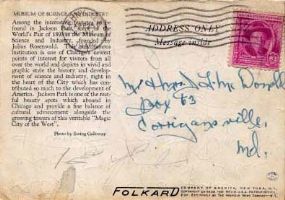 MUSEUM OF SCIENCE AND INDUSTRY
Among the interesting features to be
found in Jackson Park, site of the
World's Fair of 1893, is the Museum of
Science and Industry, founded by
Julius Rosenwald. This
institution is one of Chicago's
points of interest for visitors from all
over the world and depicts in vivid and
graphic style the history and develop-
ment of science and industry, right in
the heart of the City which has con-
tributed so much to the development of
America. Jackson Park is one of the
beauty spots which abound in
Chicago and provide a fine balance of
cultural advancement alongside the
growing towers of this veritable "Magic
City of the West".
Photo by Ewing Galloway
ADDRESS ONLY
Message inside
Box 63
Corrigansville,
Md.
FOLKARD
COMPANY OF AMERICA, NEW YORK, N.Y.